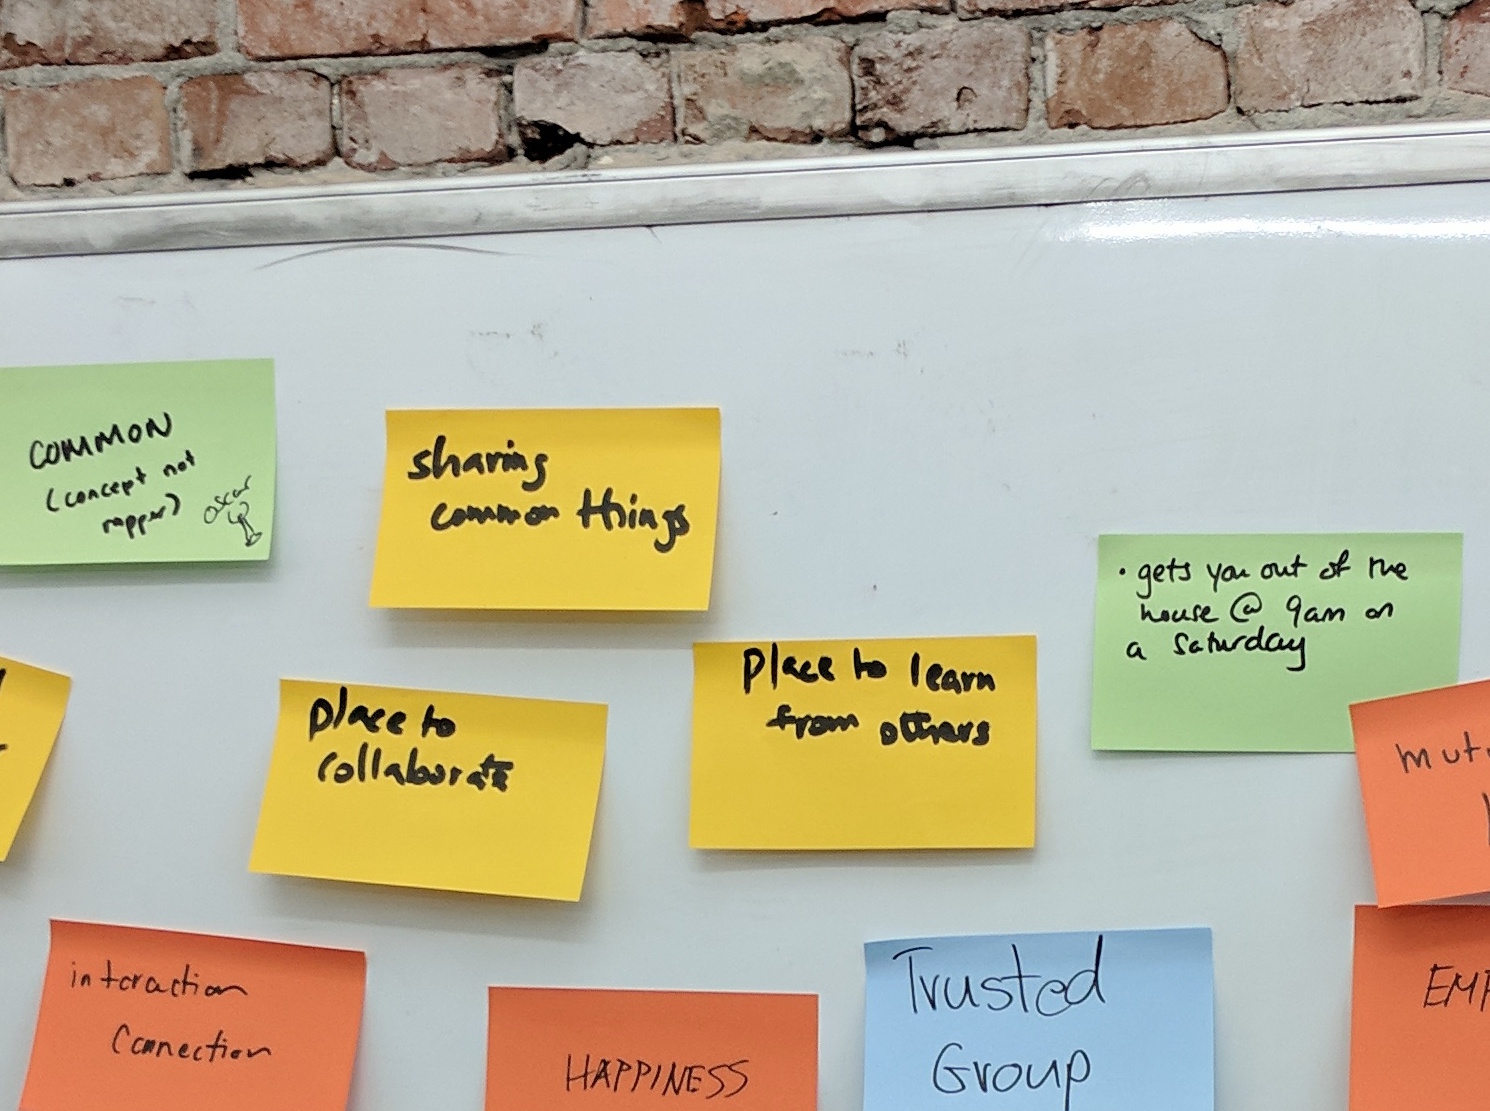 COMMON
(concept not
rapper)
oscar
sharing
common things
• gets you out of the
house @ 9am on
a Saturday
place to
collaborate
place to learn
from others
interaction
Connection
HAPPINESS
Trusted
Group